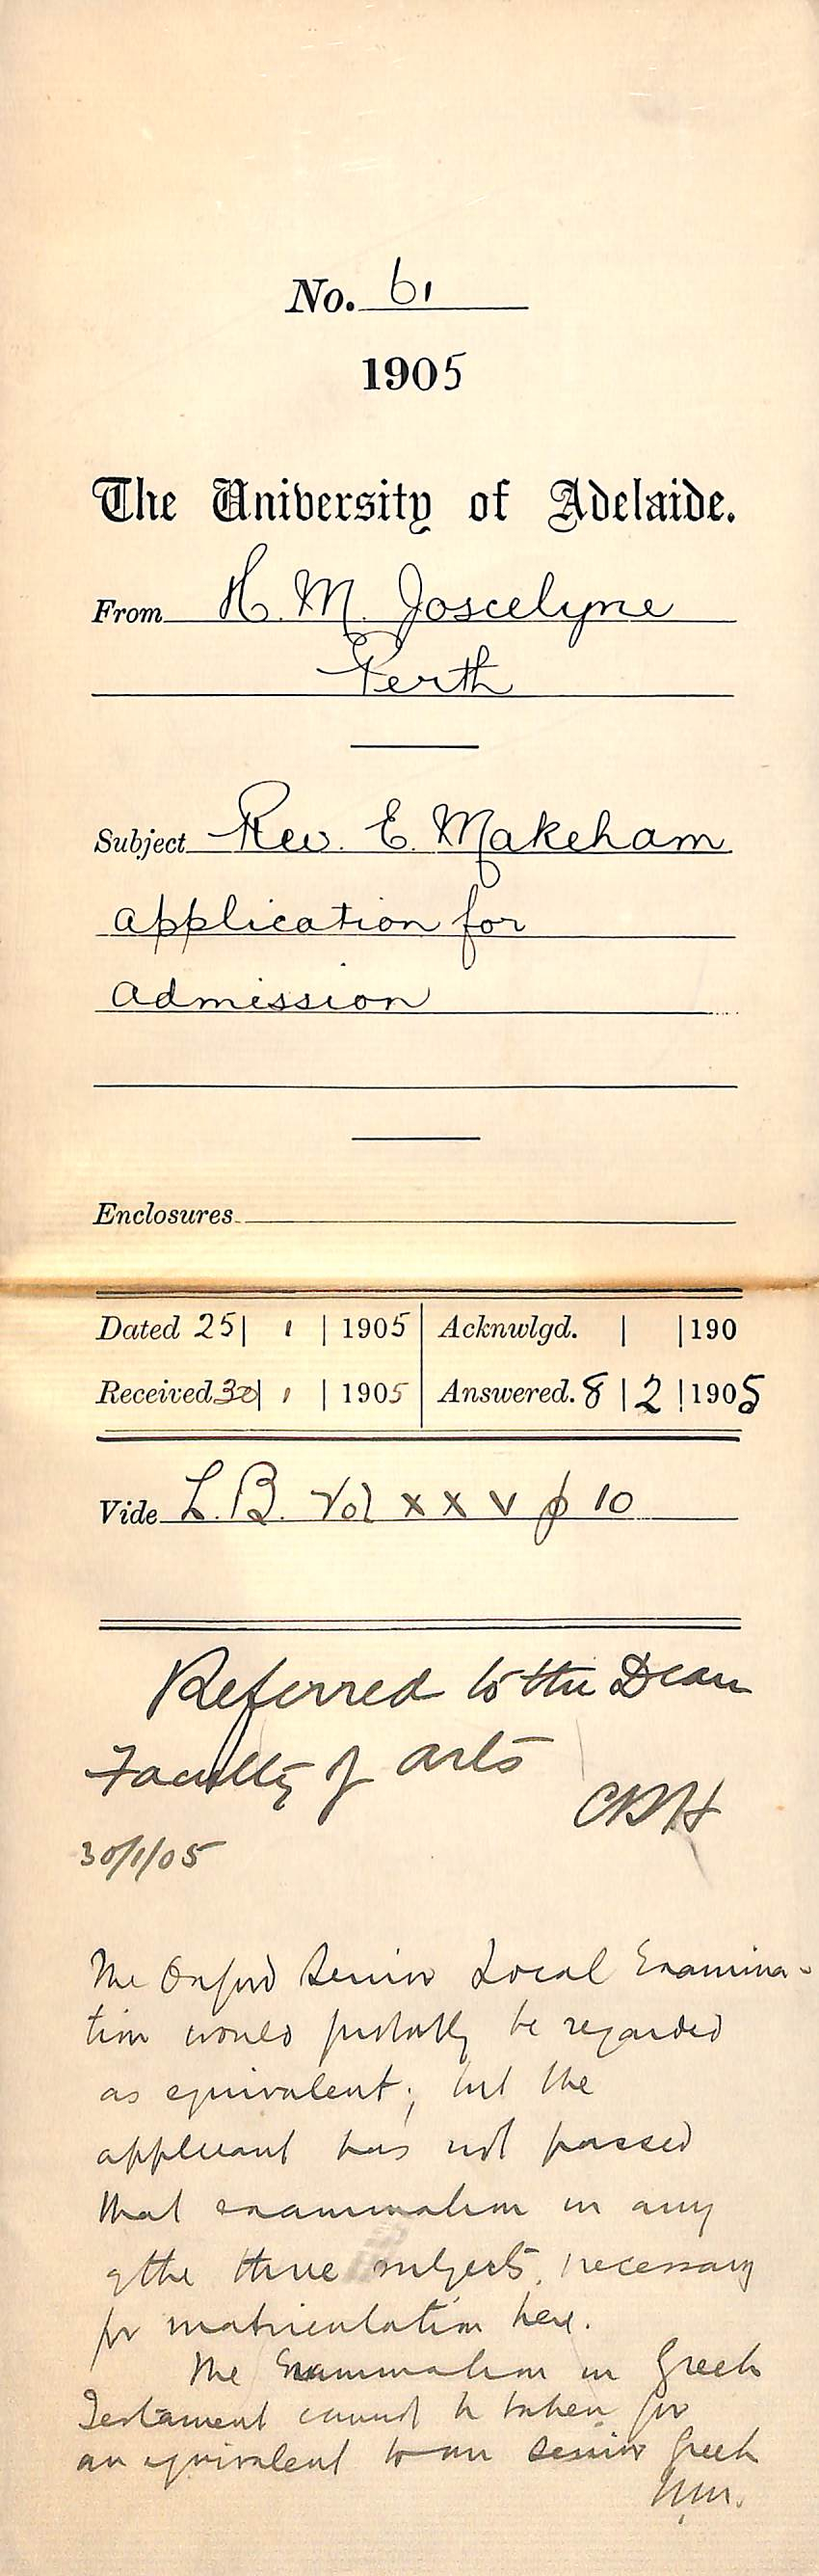 No. 61
1905
The University of Adelaide.
From H. M. Joscelyne
Perth
Subject Rev. E. Makeham
application for
admission
Enclosures
Dated 25| 1 | 1905 | Acknwlgd. | |190
Received 30| 1 | 1905 | Answered. 8 | 2 | 1905
Vide L.B. Vol XXV p 10
Referred to the Dean
Faculty of Arts
CRH
30/1/05
The Oxford Senior Local Examina-
tion would probably be regarded
as equivalent; but the
applicant has not passed
that examination in any
of the three subjects necessary
for matriculation here.
The Examination in Greek
Testament cannot be taken for
an equivalent to our Senior Greek